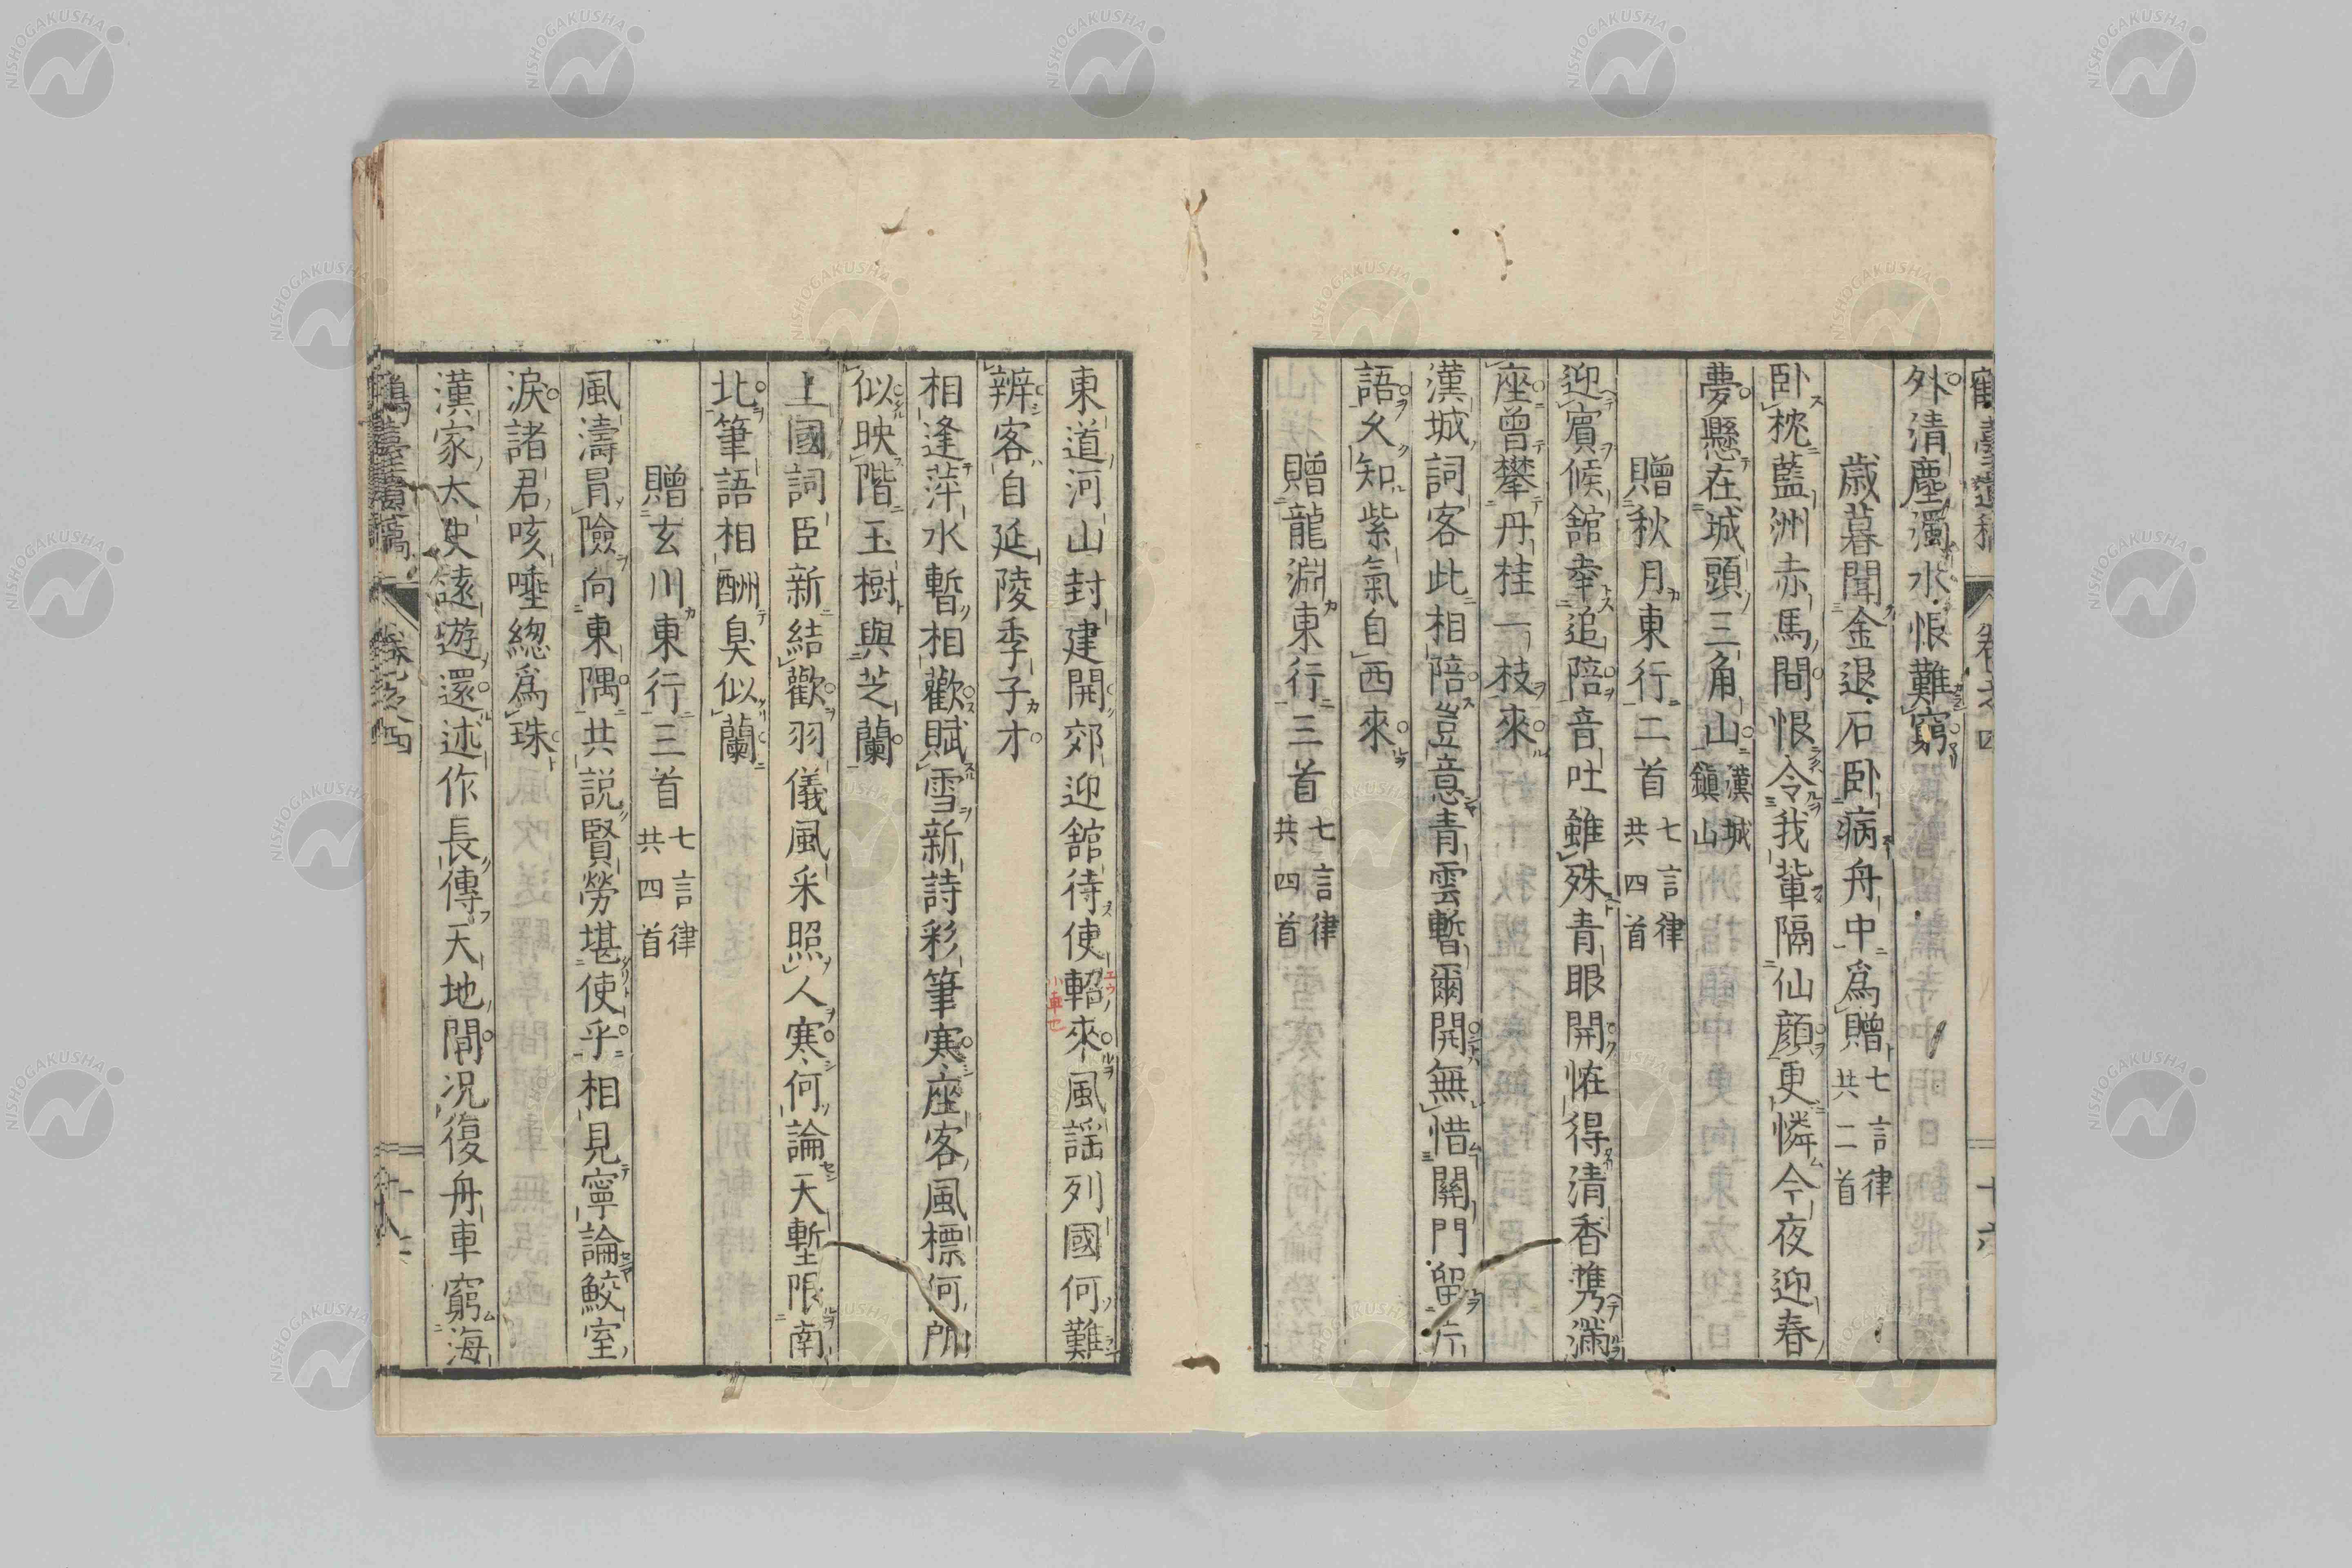 外清塵濁水悵難窮
歲暮聞金退石臥病舟中爲贈 七言律共二首
臥枕藍洲赤馬間恨令我輩隔仙顏更憐今夜迎春
夢懸在城頭三角山 漢城鎮山
贈秋月東行二首 七言律共四首
迎賓候舘幸追陪音吐雖殊青眼開恠得清香携滿
座曾攀丹桂一枝來
漢城詞客此相陪豈意青雲暫爾開無惜關門留片
語久知紫氣自西來
贈龍淵東行三首 七言律共四首
東道河山封建開郊迎舘待使軺來風謠列國何難
辨客自延陵季子才
相逢萍水暫相歡賦雪新詩彩筆寒座客風標何所
似映階玉樹與芝蘭
上國詞臣新結歡羽儀風采照人寒何論天塹限南
北筆語相酬臭似蘭
贈玄川東行三首 七言律共四首
風濤冐險向東隅共説賢勞堪使乎相見寧論鮫室
淚諸君咳唾緫爲珠
漢家太史遠遊還述作長傳天地間况復舟車窮海
卷之四
エウ
小車也
NISHOGAKUSHA